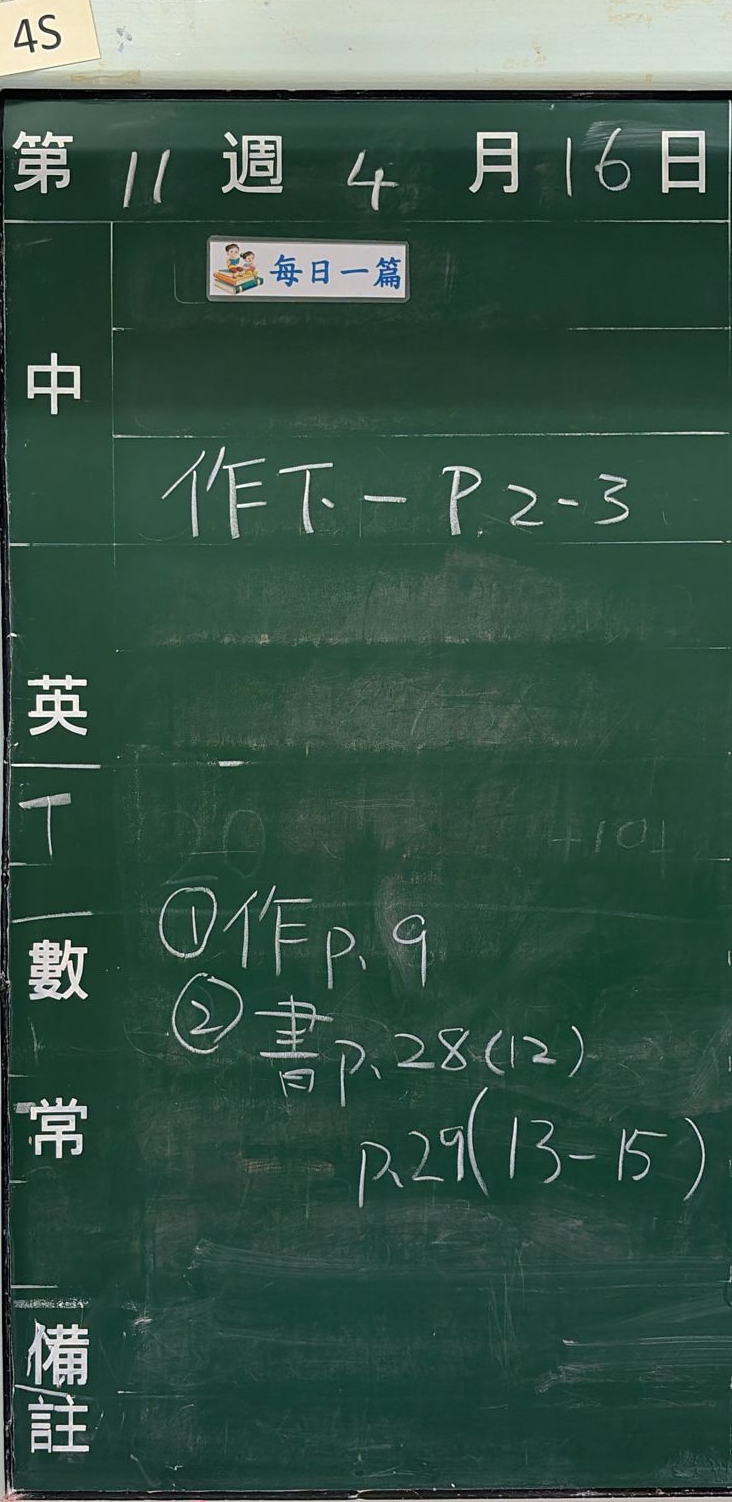 4S
第 11 週 4 月 16 日
每日一篇
中
作下一 P.2-3
英
T
數
①作p.9
②書p.28(12)
p.29(13-15)
常
備註